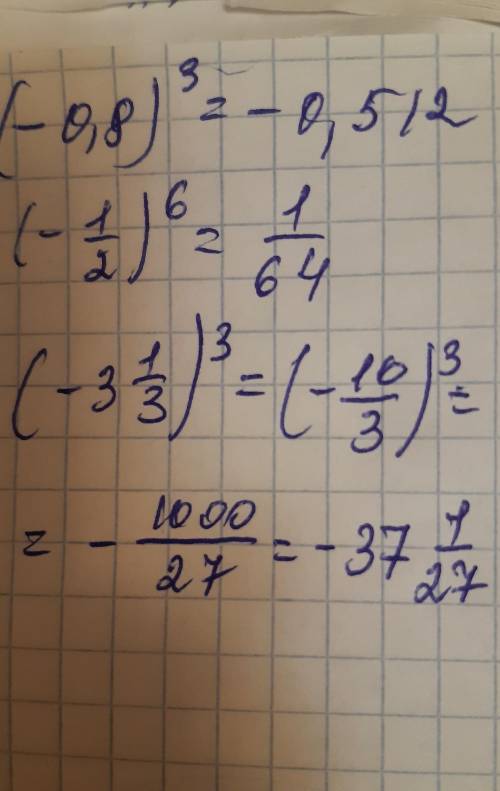 (-0,8)³ = -0,512
(-1/2)⁶ = 1/64
(-3 1/3)³ = (-10/3)³ =
= -1000/27 = -37 1/27